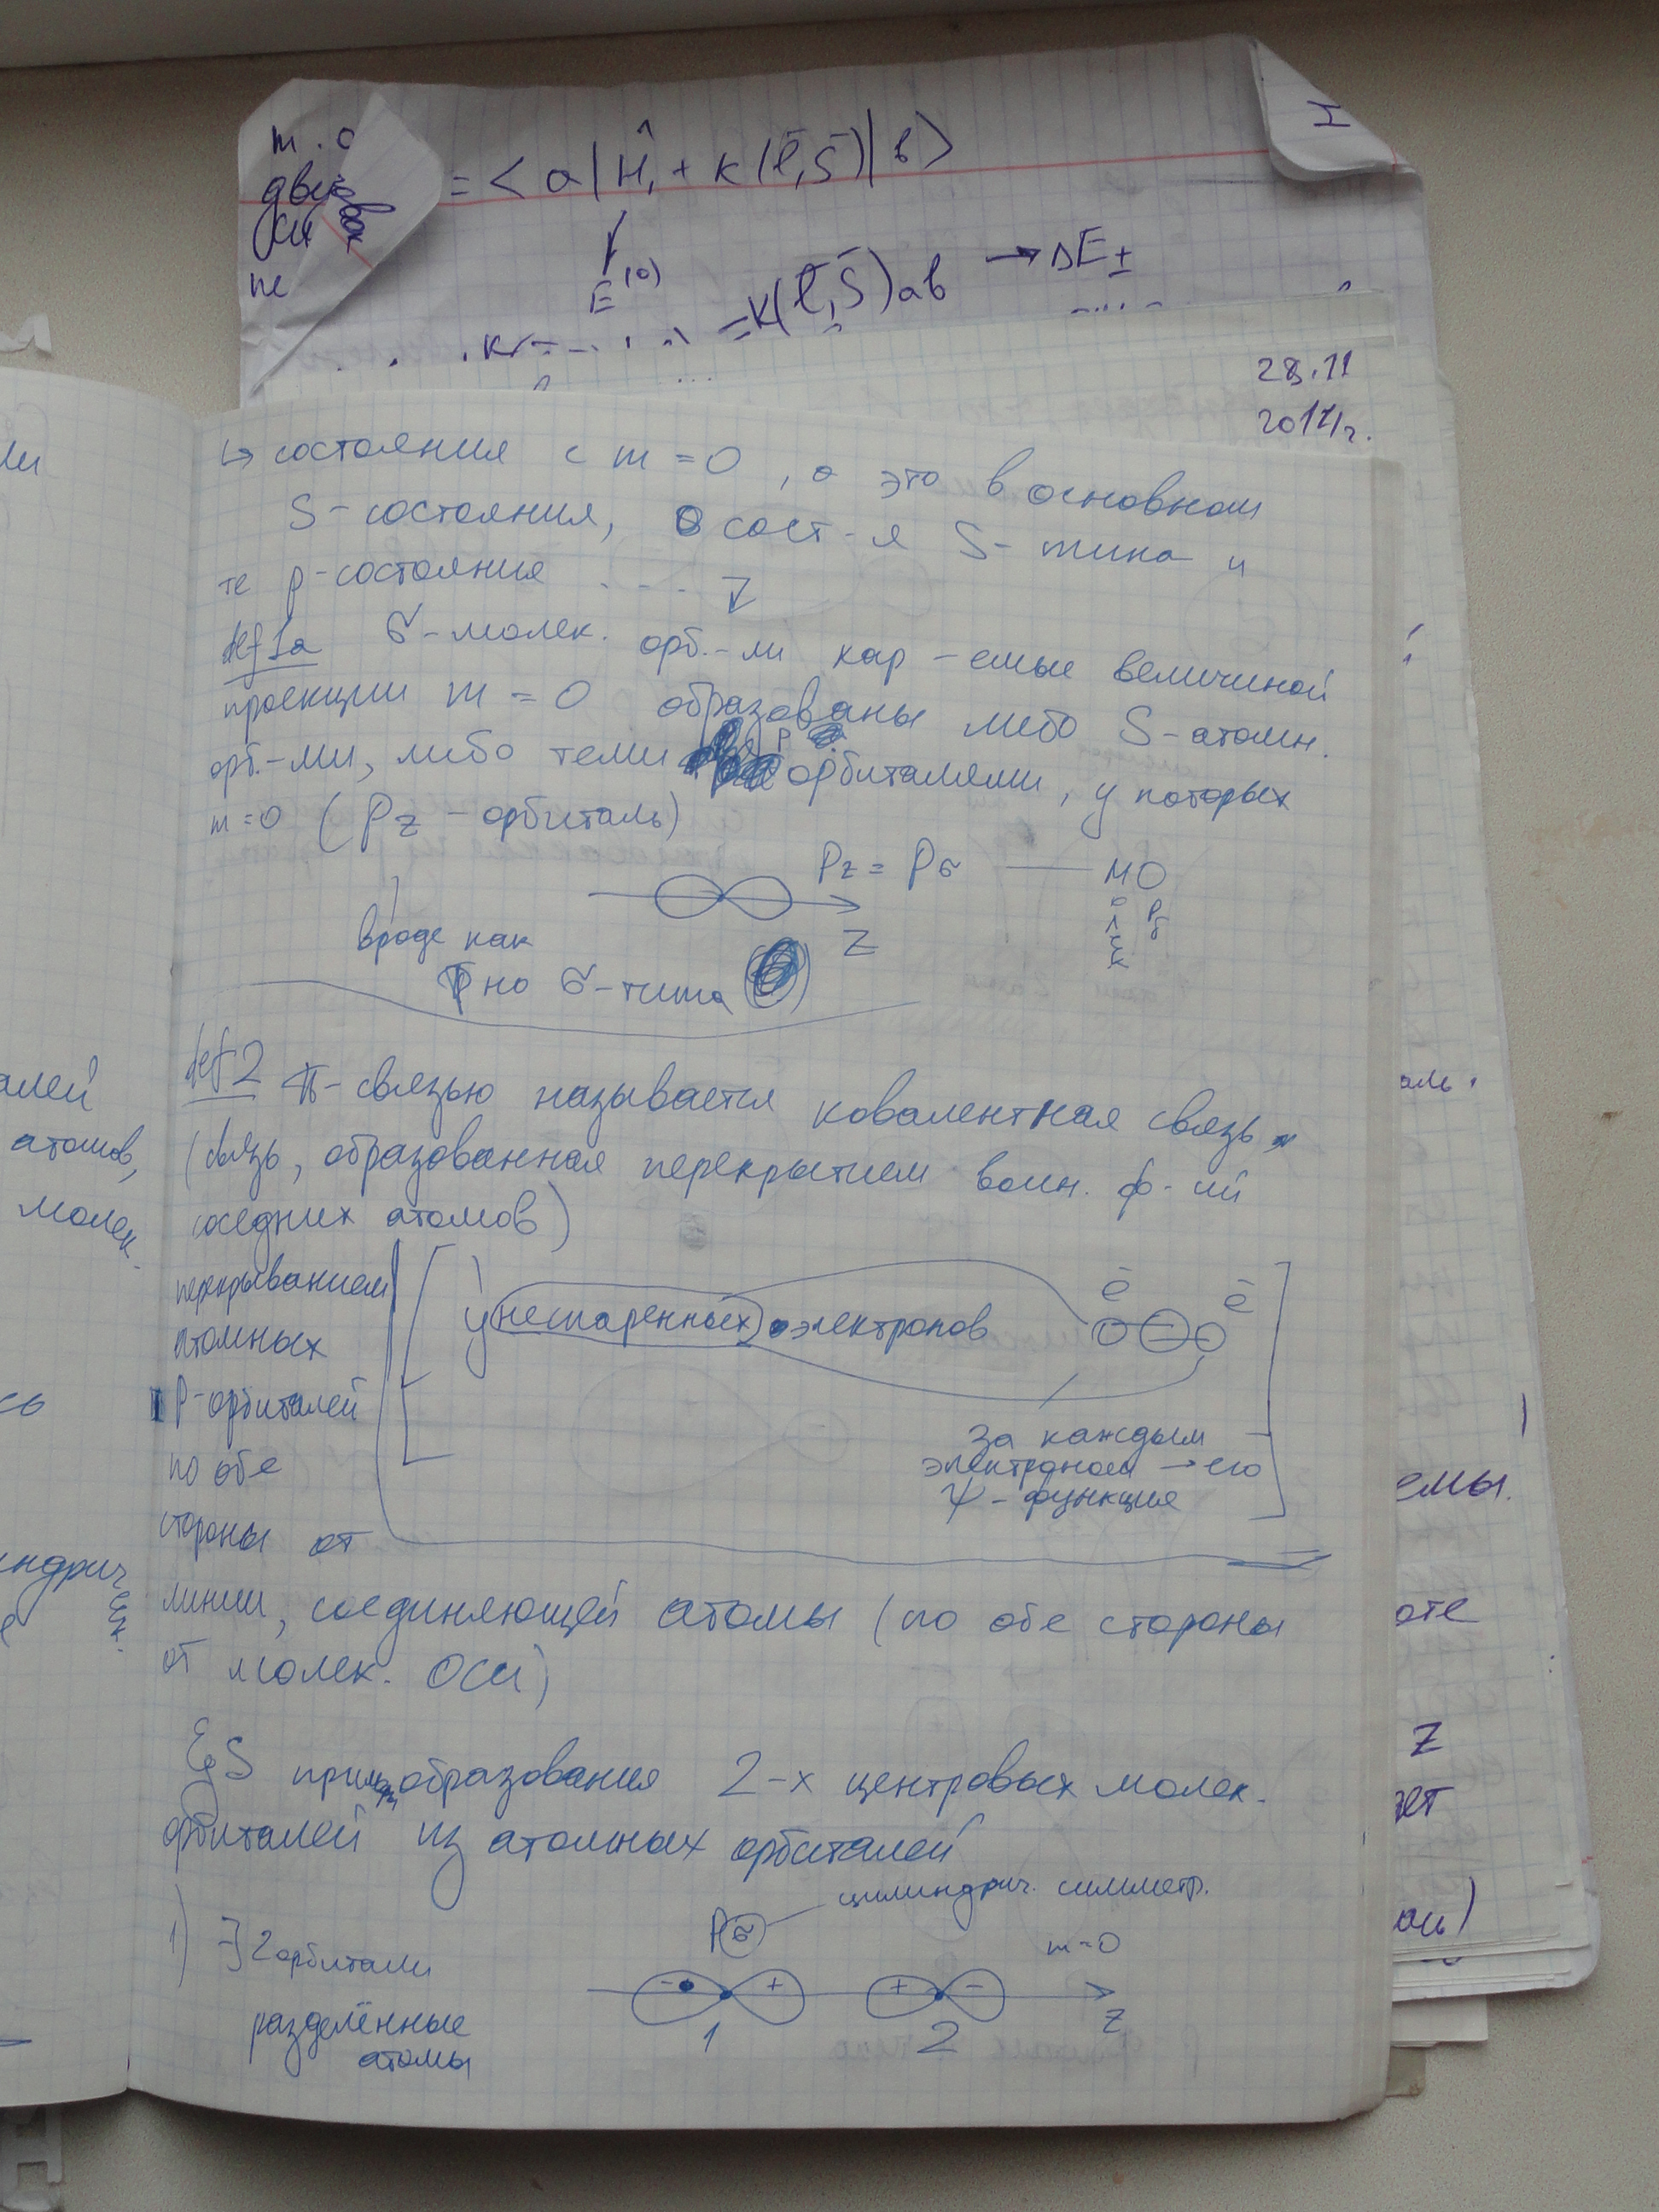 m. 0
= < a | Ĥ₁ + K(l̄,S̄) | b >
E⁽⁰⁾
= K(l̄,S̄)ab → ΔE±
28.11
2017г.
↳ состояния с m = 0, а это в основном
S-состояния, сост-я S-типа и
те p-состояния ....
def 1a σ-молек. орб.-ли хар-емые величиной
проекции m = 0 образованы либо S-атомн.
орб.-ми, либо теми p орбиталями, у которых
m=0 (Pz - орбиталь)
Pz = Pσ — МО
Z
вроде как
P но σ-типа
def 2 π-связью называется ковалентная связь
(связь, образованная перекрытием волн. ф-ий
соседних атомов)
перекрыванием
атомных
P-орбиталей
по обе
стороны от
у неспаренных электронов
ē ē
за каждым
электроном → его
ψ - функция
линии, соединяющей атомы (по обе стороны
от молек. оси)
образования 2-х центровых молек.
орбиталей из атомных орбиталей
цилиндрич. симметр.
1) ∃ 2 орбитали
разделённые
атомы
Pσ
m=0
- + + -
1 2 Z
алей
атомов,
молек.
емы.
оте
Z